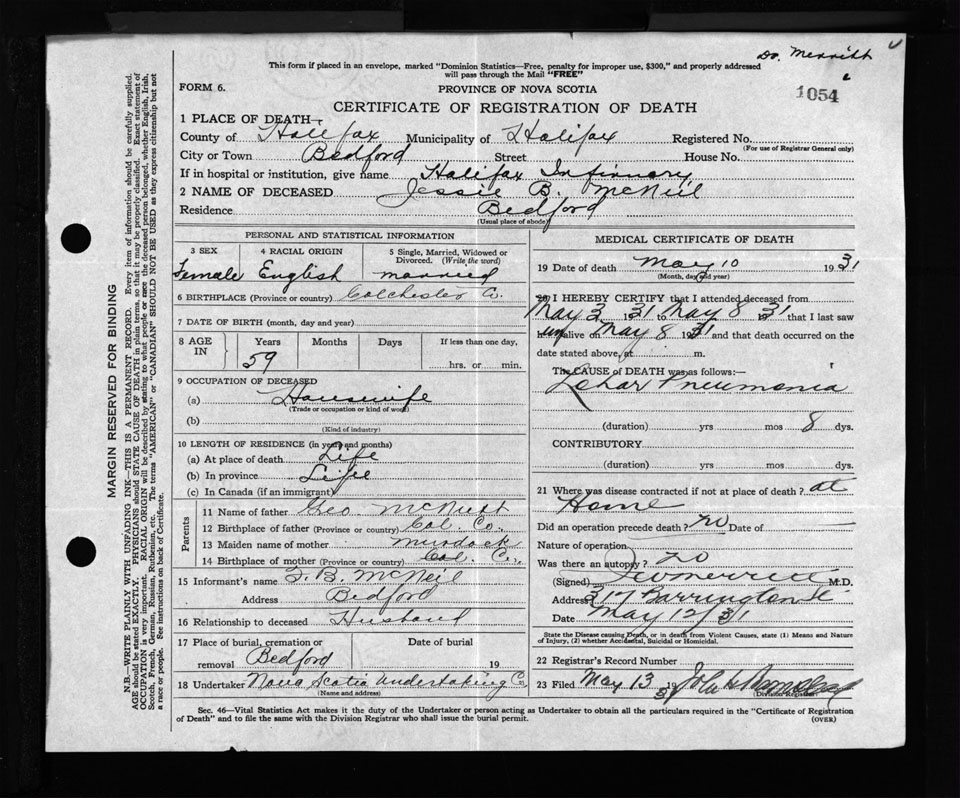 Dr. Merritt
This form if placed in an envelope, marked "Dominion Statistics—Free, penalty for improper use, $300," and properly addressed
will pass through the Mail "FREE"
1054
FORM 6.
PROVINCE OF NOVA SCOTIA
CERTIFICATE OF REGISTRATION OF DEATH
1 PLACE OF DEATH—
County of Halifax Municipality of Halifax Registered No.
(For use of Registrar General only)
City or Town Bedford Street House No.
If in hospital or institution, give name Halifax Infirmary
2 NAME OF DECEASED Jessie B. McNeil
Residence Bedford
(Usual place of abode)
PERSONAL AND STATISTICAL INFORMATION
3 SEX 4 RACIAL ORIGIN 5 Single, Married, Widowed or Divorced. (Write the word)
Female English married
6 BIRTHPLACE (Province or country) Colchester Co.
7 DATE OF BIRTH (month, day and year)
8 AGE IN Years Months Days If less than one day,
59 hrs. or min.
9 OCCUPATION OF DECEASED
(a) Housewife
(Trade or occupation or kind of work)
(b)
(Kind of industry)
10 LENGTH OF RESIDENCE (in years and months)
(a) At place of death Life
(b) In province Life
(c) In Canada (if an immigrant)
Parents
11 Name of father Geo
12 Birthplace of father (Province or country) Col. Co.
13 Maiden name of mother Murdock
14 Birthplace of mother (Province or country) Col. C.
15 Informant's name B. McNeil
Address Bedford
16 Relationship to deceased Husband
17 Place of burial, cremation or removal Bedford Date of burial 19
18 Undertaker Nova Scotia Undertaking Co.
(Name and address)
MEDICAL CERTIFICATE OF DEATH
19 Date of death May 10 1931
(Month, day and year)
20 I HEREBY CERTIFY that I attended deceased from
May 3 1931 to May 8 1931 that I last saw
alive on May 8 1931 and that death occurred on the
date stated above, at m.
The CAUSE of DEATH was as follows:—
Lobar Pneumonia
(duration) yrs mos 8 dys.
CONTRIBUTORY
(duration) yrs mos dys.
21 Where was disease contracted if not at place of death? at
Home
Did an operation precede death? no Date of
Nature of operation
Was there an autopsy? no
(Signed) Merritt M.D.
Address 317 Barrington St
Date May 12/31
State the Disease causing Death, or in death from Violent Causes, state (1) Means and Nature
of Injury, (2) whether Accidental, Suicidal or Homicidal.
22 Registrar's Record Number
23 Filed May 13
Sec. 46—Vital Statistics Act makes it the duty of the Undertaker or person acting as Undertaker to obtain all the particulars required in the "Certificate of Registration
of Death" and to file the same with the Division Registrar who shall issue the burial permit.
(OVER)
MARGIN RESERVED FOR BINDING
N.B.—WRITE PLAINLY WITH UNFADING INK—THIS IS A PERMANENT RECORD. Every item of information should be carefully supplied.
AGE should be stated EXACTLY. PHYSICIANS should STATE CAUSE OF DEATH in plain terms, so that it may be properly classified. Exact statement of
OCCUPATION is very important. RACIAL ORIGIN will be described by stating to what people or race the deceased person belonged, whether English, Irish,
Scotch, French, German, Russian, Ruthenian, etc. The terms "AMERICAN" or "CANADIAN" SHOULD NOT BE USED as they express citizenship but not
a race or people. See instructions on back of Certificate.